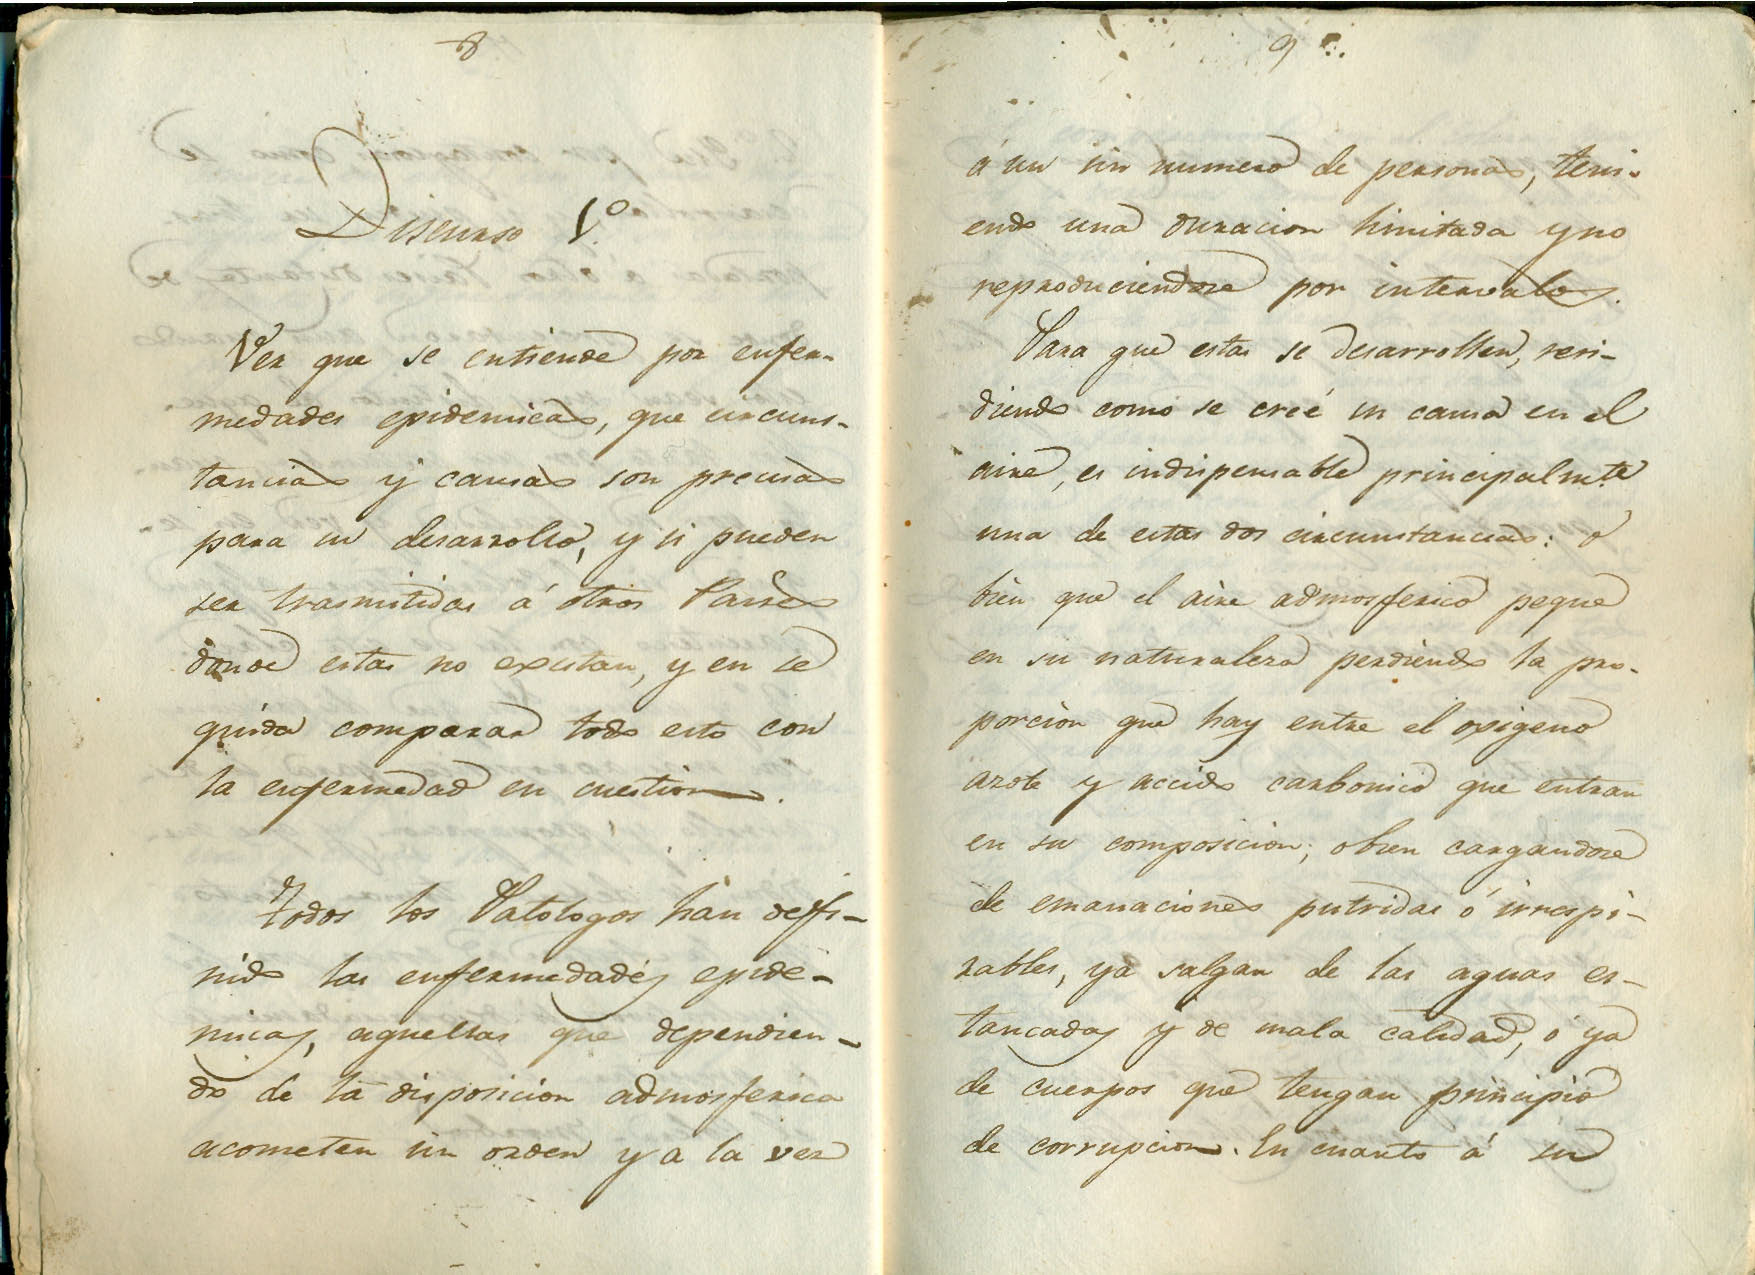 8
Discurso 1.º
Ver que se entiende por enfer-
medades epidemicas, que circuns-
tancias y causas son precisas
para su desarrollo, y si pueden
ser trasmitidas á otros Paises
donde estas no existan, y en se
guida comparar todo esto con
la enfermedad en cuestion.
Todos los Patologos han defi-
nido las enfermedades epide-
micas, aquellas que dependien-
do de la disposicion admosferica
acometen sin orden y a la vez
9
á un sin numero de personas, teni-
endo una duracion limitada y no
reproduciendose por intervalos.
Para que estas se desarrollen, resi-
diendo como se creé su causa en el
aire, es indispensable principalm.te
una de estas dos circunstancias: o
bien que el aire admosferico peque
en su naturaleza perdiendo la pro-
porcion que hay entre el oxigeno
azote y accido carbonico que entran
en su composicion; obien cargandose
de emanaciones putridas ó irrespi-
rables, ya salgan de las aguas es-
tancadas y de mala calidad, ó ya
de cuerpos que tengan principio
de corrupcion. En cuanto á su